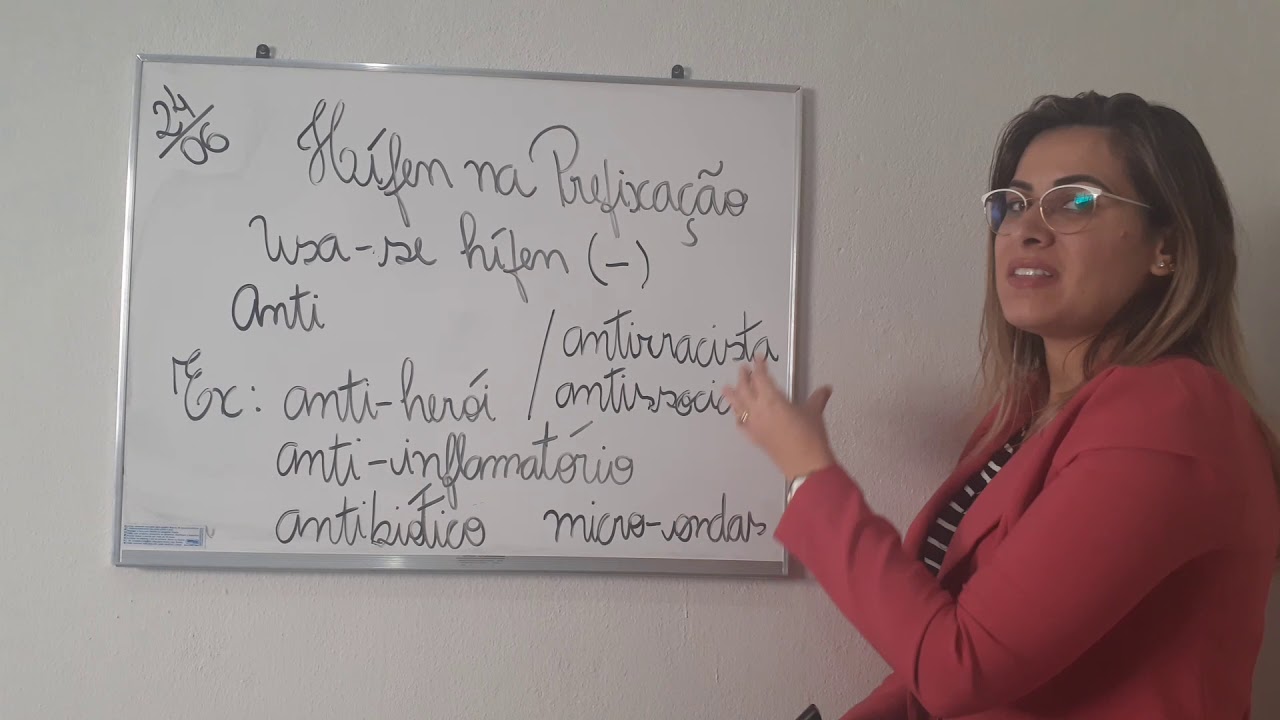 24/06
Hífen na Prefixação
Usa-se hífen (-)
Anti
Ex: anti-herói / antirracista
/ antissoci
anti-inflamatório
antibiótico micro-ondas